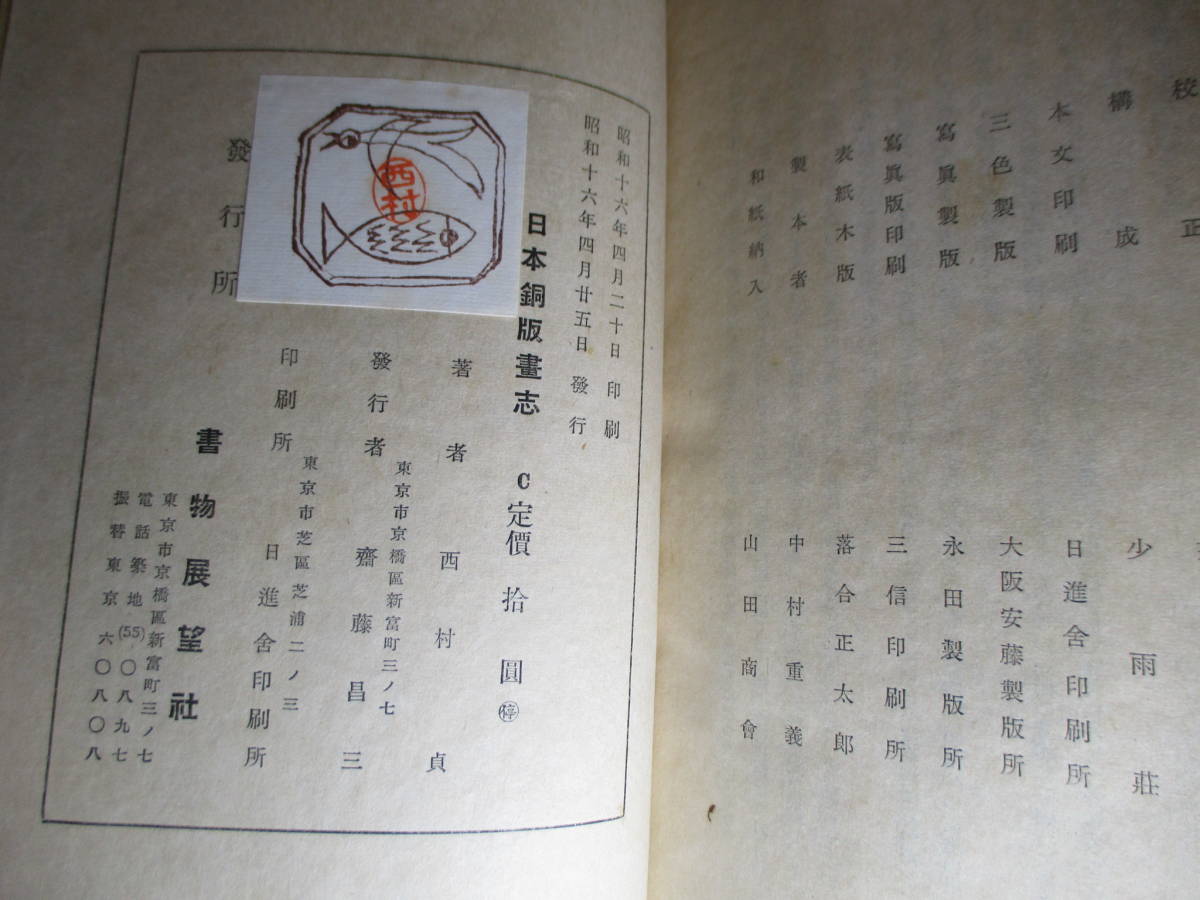 校正
構成 少雨莊
本文印刷 日進舍印刷所
三色製版 大阪安藤製版所
寫眞製版 永田製版所
寫眞版印刷 三信印刷所
表紙木版 落合正太郎
製本者 中村重義
和紙納入 山田商會
昭和十六年四月二十日 印刷
昭和十六年四月廿五日 發行
日本銅版畫志 C定價 拾圓 ㊡
著者 西村貞
東京市京橋區新富町三ノ七
發行者 齋藤昌三
東京市芝區芝浦二ノ三
印刷所 日進舍印刷所
西村
發行所 書物展望社
東京市京橋區新富町三ノ七
電話築地(55)〇八九七
振替東京六〇八〇八